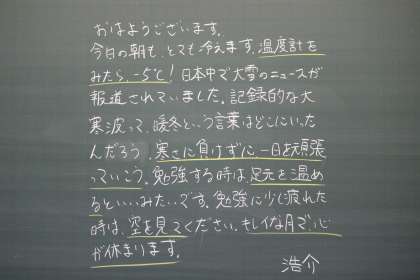 おはようございます。
今日の朝も、とても冷えます。温度計を
みたら、-5℃! 日本中で大雪のニュースが
報道されていました。記録的な大
寒波って、暖冬という言葉はどこにいった
んだろう。寒さに負けずに一日を頑張
っていこう。勉強する時は、足元を温め
るといいみたいです。勉強に少し疲れた
時は、空を見てください。キレイな月で、心
が休まります。
浩介